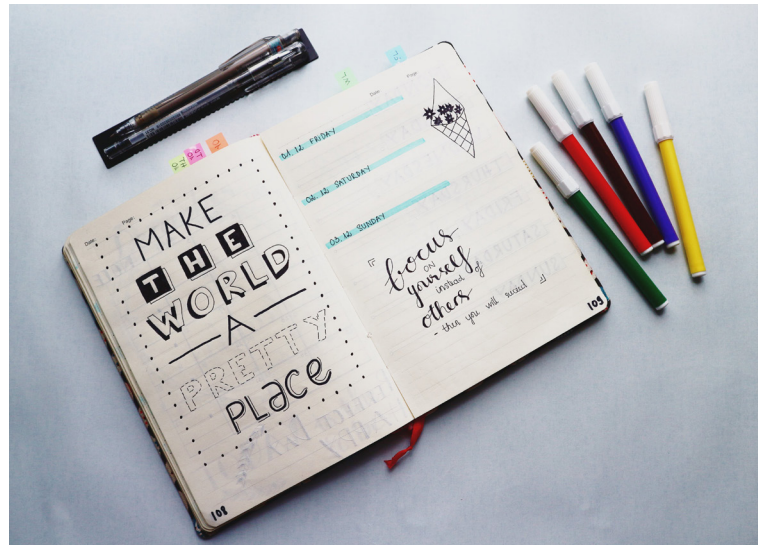 Date:
Page:
MAKE
THE
WORLD
A
PRETTY
PLACE
108
Date:
Page:
01. 12. FRIDAY
02. 12. SATURDAY
03. 12. SUNDAY
focus
on
yourself
instead of
others
- then you will succeed
109